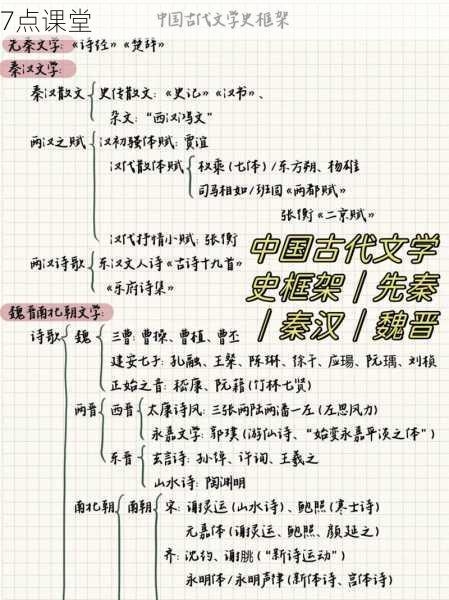 7点课堂
中国古代文学史框架
先秦文学:《诗经》《楚辞》
秦汉文学:
秦汉散文 史传散文:《史记》《汉书》、
杂文:“西汉鸿文”
两汉之赋 汉初骚体赋: 贾谊
汉代散体赋 枚乘(七体)/东方朔、杨雄
司马相如/班固《两都赋》
张衡《二京赋》
汉代抒情小赋: 张衡
两汉诗歌 东汉文人诗《古诗十九首》
《乐府诗集》
中国古代文学
史框架|先秦
|秦汉|魏晋
魏晋南北朝文学:
诗歌 魏 三曹: 曹操、曹植、曹丕
建安七子: 孔融、王粲、陈琳、徐干、应玚、阮瑀、刘桢
正始之音: 嵇康、阮籍(竹林七贤)
两晋 西晋 太康诗风: 三张两陆两潘一左(左思风力)
永嘉文学: 郭璞(游仙诗、“始变永嘉平淡之体”)
东晋 玄言诗: 孙绰、许询、王羲之
山水诗: 陶渊明
南北朝 南朝 宋: 谢灵运(山水诗)、鲍照(寒士诗)
元嘉体(谢灵运、鲍照、颜延之)
齐: 沈约、谢朓(“新诗运动”)
永明体/永明声律(新体诗、宫体诗)